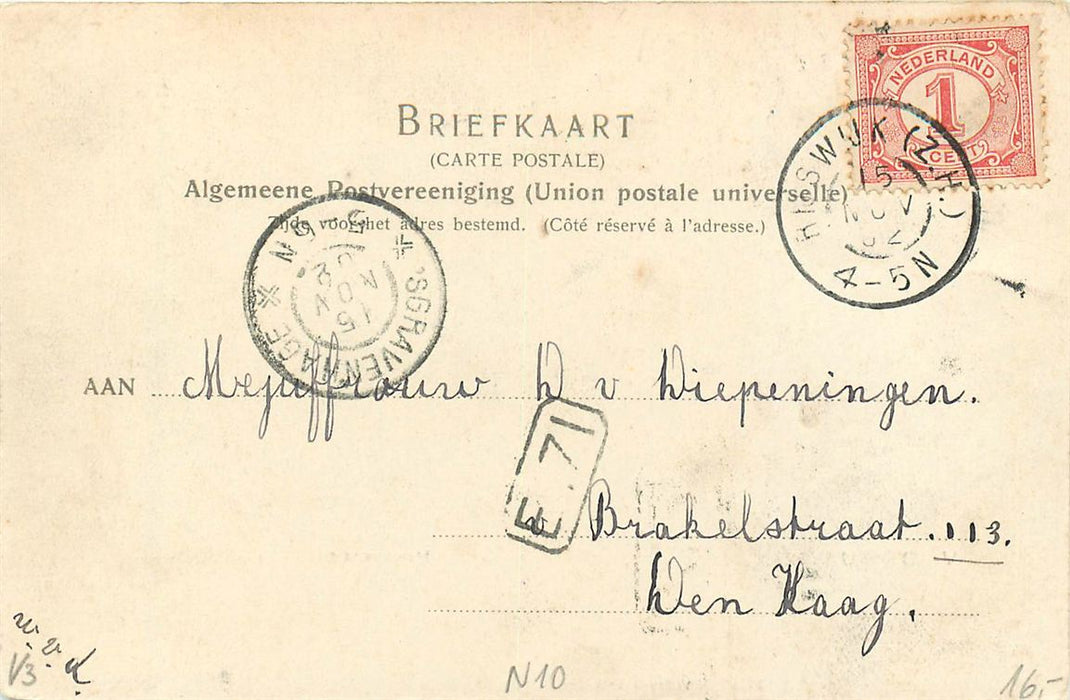 NEDERLAND
1
CENT
BRIEFKAART
(CARTE POSTALE)
Algemeene Postvereeniging (Union postale universelle)
Zijde voor het adres bestemd. (Côté réservé à l'adresse.)
RIJSWIJK (Z.H.)
15
NOV
02
4-5N
'SGRAVENHAGE
5-6N
15
NOV
02
AAN Mejuffrouw D v Diepeningen.
E.71
v Brakelstraat. 113.
Den Haag.
1/3
N10
16-